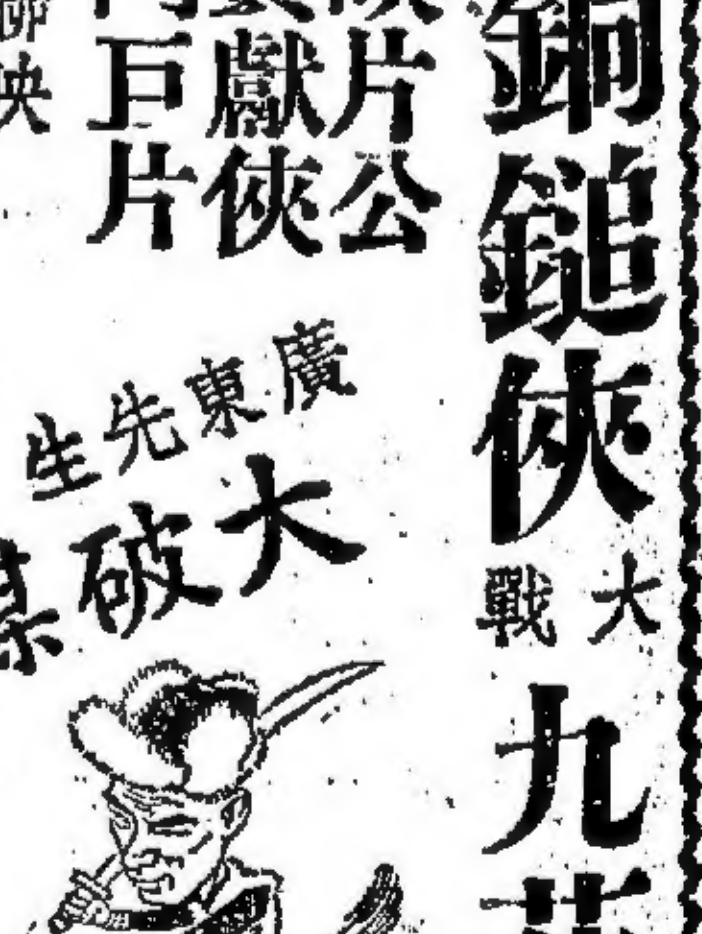 銅鎚俠
大戰
九
片公
獻俠
巨片
映
廣東先生
大破